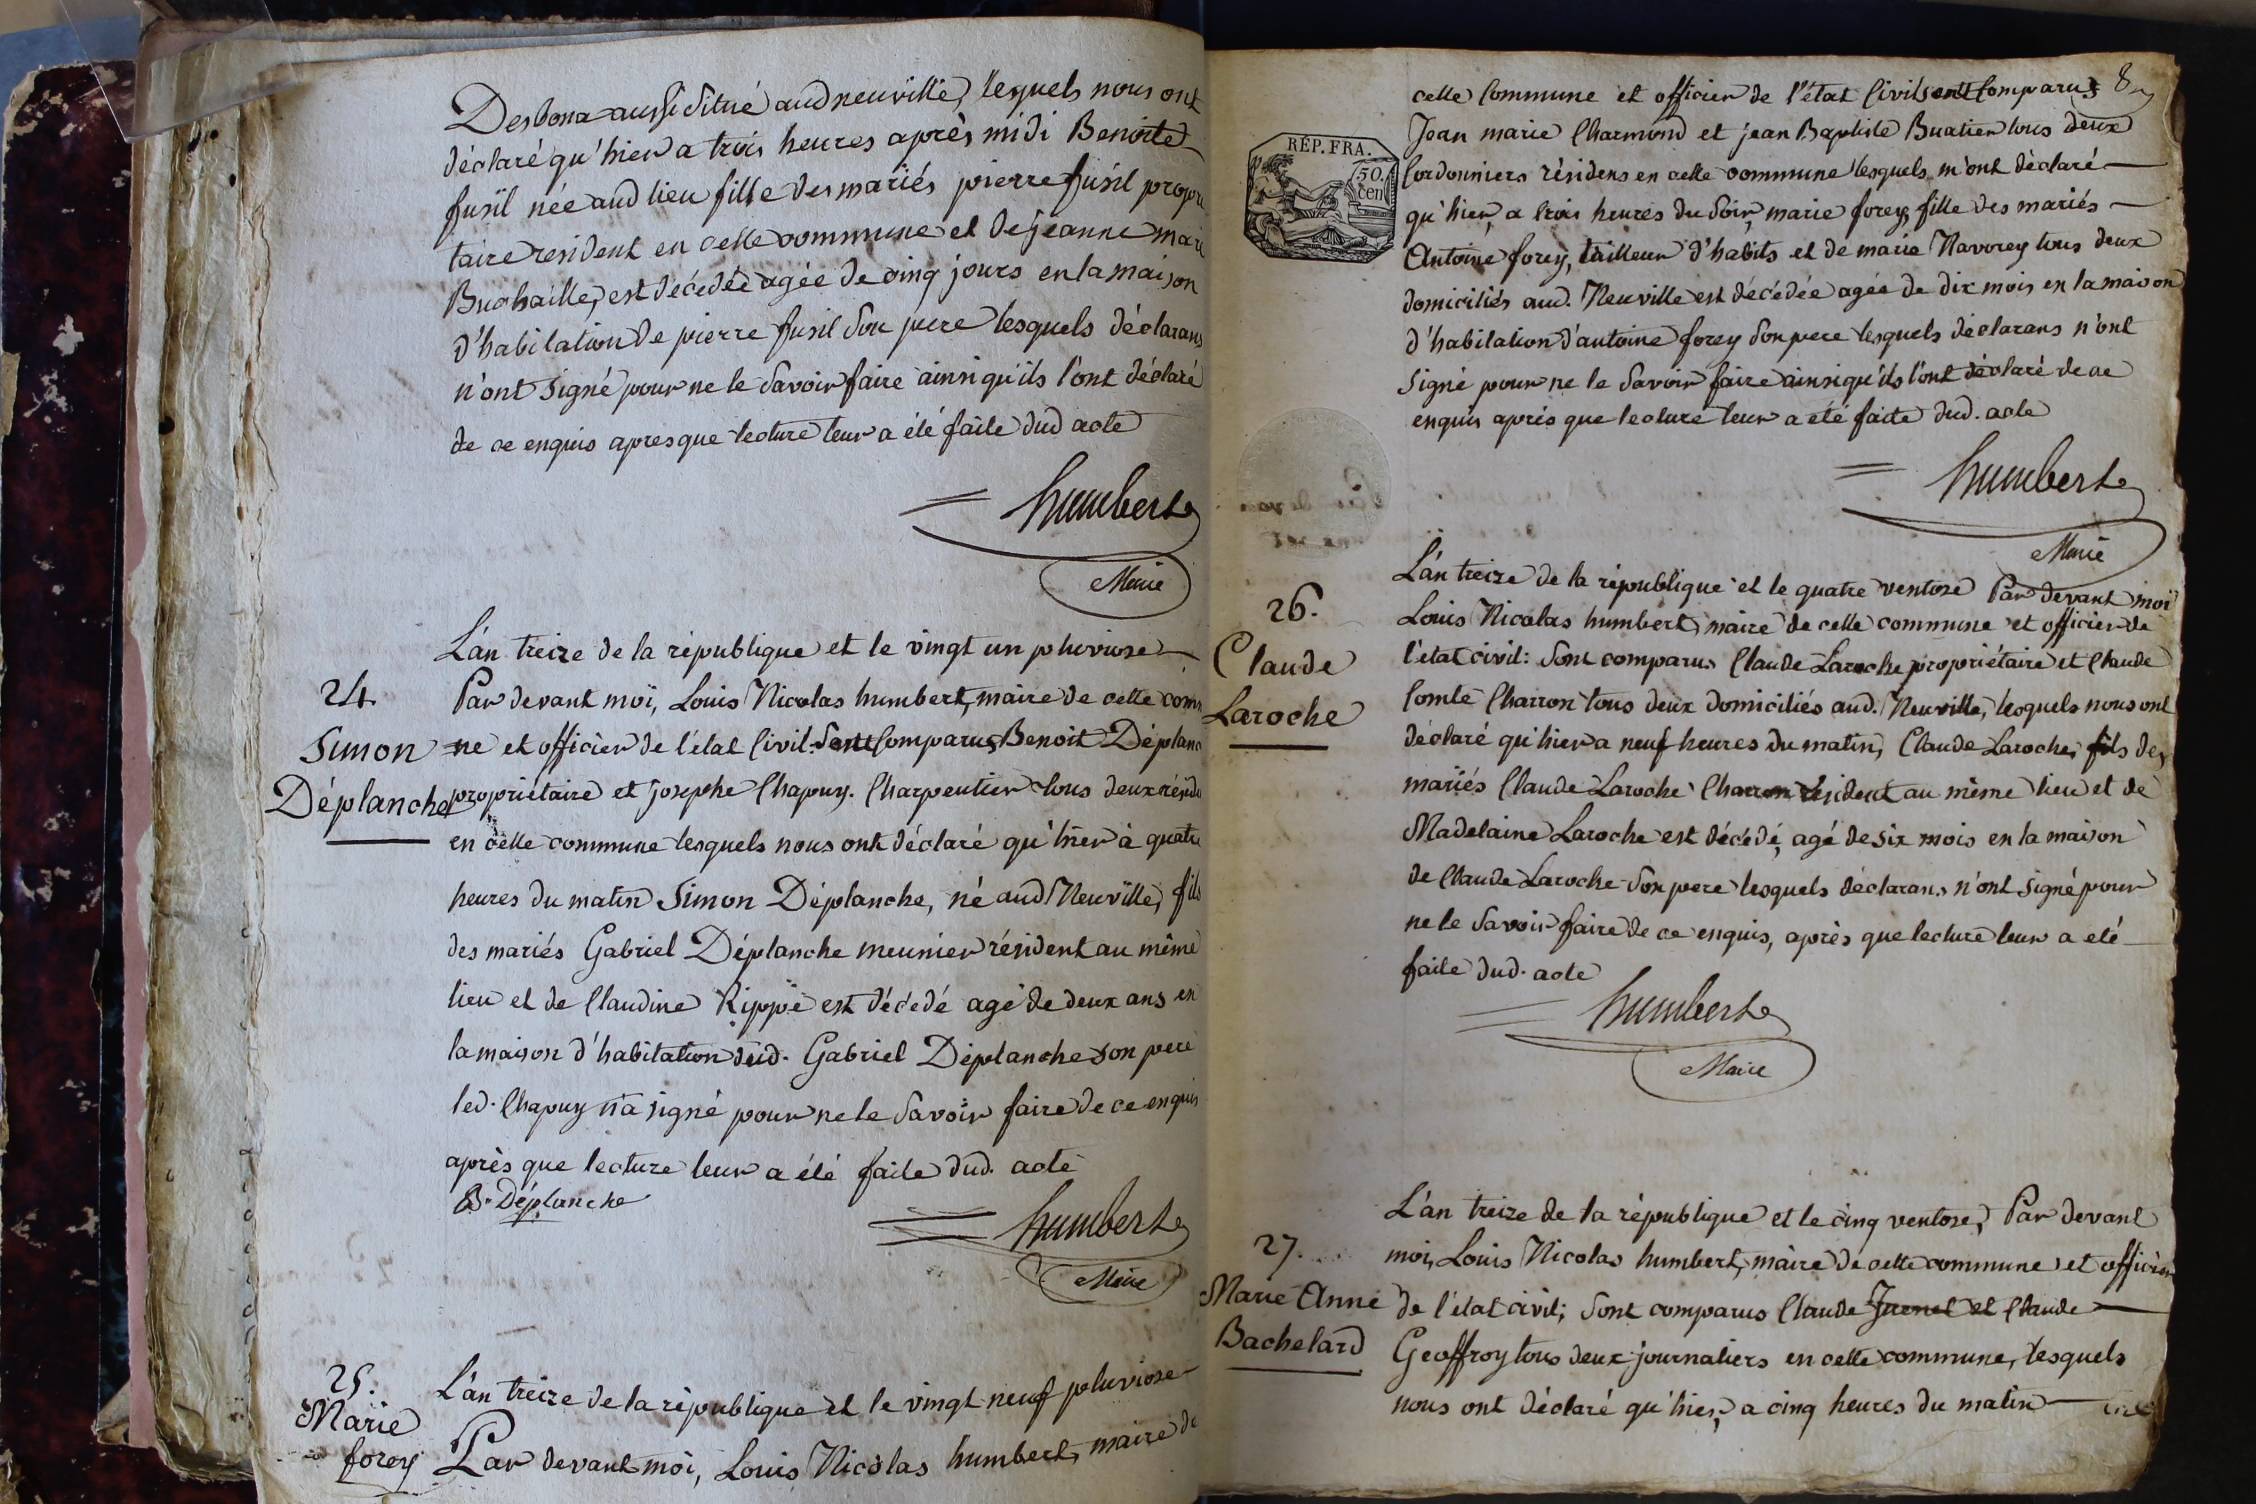 Desbona aussi Situé aud neuville, lesquels nous ont
déclaré qu'hier a trois heures après midi Benoite
fusil née aud lieu fille des mariés pierre fusil propri
taire resident en cette commune et de jeanne marie
Buchaille, est décédée agée de cinq jours en la maison
d'habitation de pierre fusil Son pere lesquels déclarans
n'ont Signé pour ne le Savoir faire ainsi qu'ils l'ont déclaré
de ce enquis apres que lecture leur a été faite dud acte
humbert
Maire
L'an treize de la république et le vingt un pluviose
24.
Simon
Déplanche
Par devant moi, Louis Nicolas humbert, maire de cette com
ne et officier de l'état Civil. Sont Comparus Benoit Déplanc
propriétaire et josephe Chapuy. Charpentier tous deux résid
en cette commune lesquels nous ont déclaré qu'hier à quatre
heures du matin Simon Déplanche, né aud Neuville, fils
des mariés Gabriel Déplanche meunier résident au même
lieu et de Claudine Rippe est décédé agé de deux ans en
la maison d'habitation dud. Gabriel Déplanche son pere
led. Chapuy n'a signé pour ne le Savoir faire de ce enquis
après que lecture leur a été faite dud. acte
B. Déplanche
humbert
Maire
25.
Marie
forey
L'an treize de la république et le vingt neuf pluviose
Par devant moi, Louis Nicolas humbert, maire de
8
cette Commune et officier de l'état Civil sont Comparus
RÉP. FRA.
50.
cen
Jean marie Charmond et jean Baptiste Buatier tous deux
Cordonniers résidens en cette commune lesquels m'ont déclaré
qu'hier, a trois heures du Soir, marie forey, fille des mariés
Antoine forey, tailleur d'habits et de marie Navorey tous deux
domiciliés aud. Neuville est décédée agée de dix mois en la maison
d'habitation d'antoine forey Son pere lesquels déclarans n'ont
Signé pour ne le Savoir faire ainsi qu'ils l'ont déclaré de ce
enquis après que lecture leur a eté faite dud. acte
humbert
Maire
26.
Claude
Laroche
L'an treize de la république et le quatre ventose Par devant moi
Louis Nicolas humbert, maire de cette commune et officier de
l'état civil: Sont comparus Claude Laroche propriétaire et Claude
Comte Charron tous deux domiciliés aud. Neuville, lesquels nous ont
déclaré qu'hier a neuf heures du matin, Claude Laroche, fils des
mariés Claude Laroche Charron résident au même lieu et de
Madelaine Laroche est décédé, agé de six mois en la maison
de Claude Laroche Son pere lesquels déclarans n'ont signé pour
ne le Savoir faire de ce enquis, après que lecture leur a eté
faite dud. acte
humbert
Maire
27.
Marie Anne
Bachelard
L'an treize de la république et le cinq ventose, Par devant
moi, Louis Nicolas humbert, maire de cette commune et officier
de l'état civil; Sont comparus Claude et Claude
Geoffroy tous deux journaliers en cette commune, lesquels
nous ont déclaré qu'hier, a cinq heures du matin